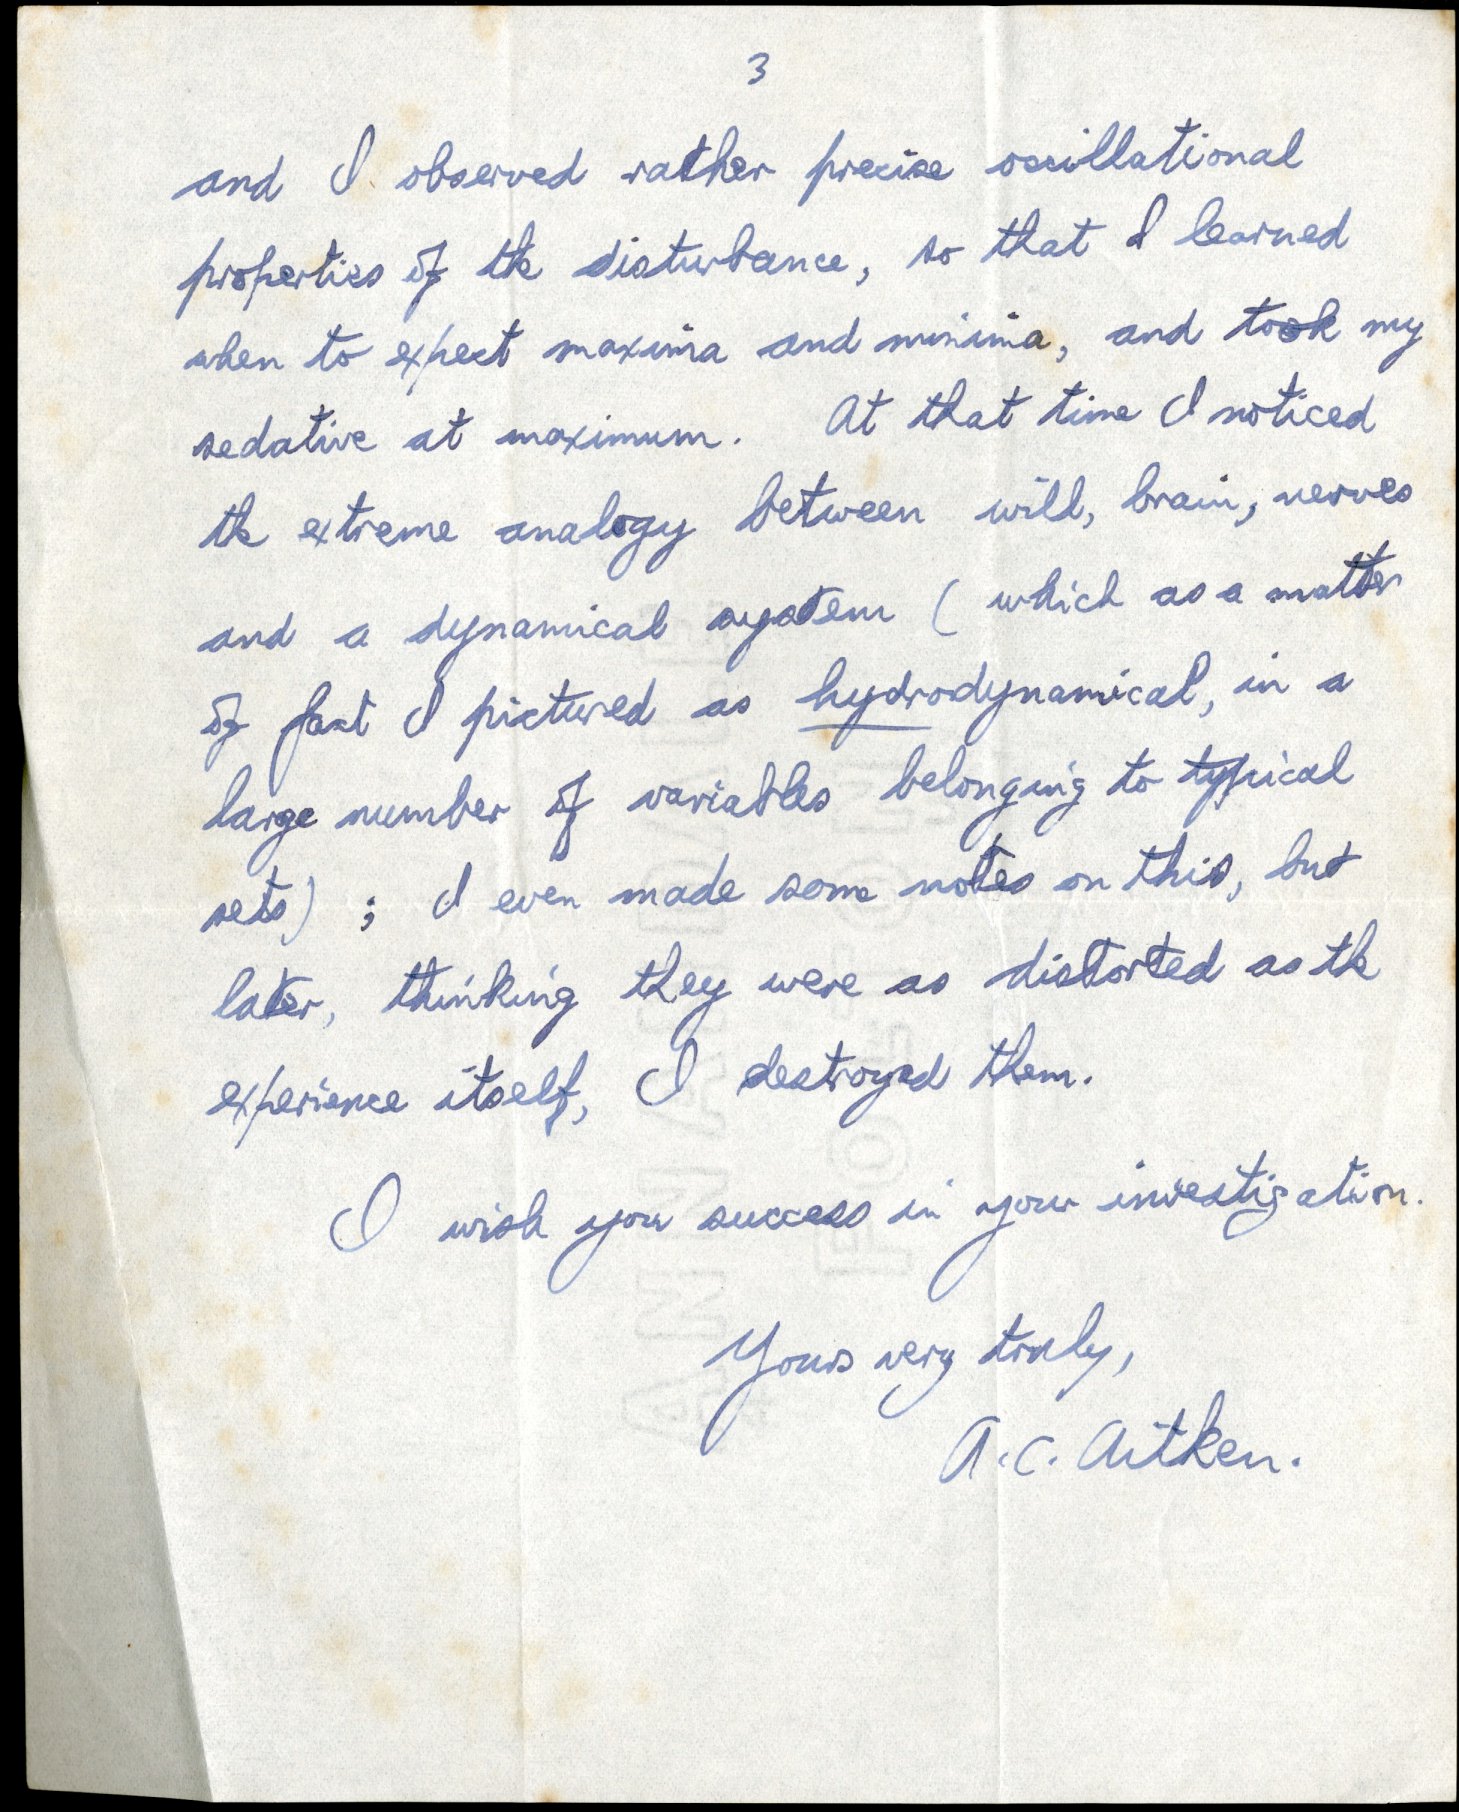 3
and I observed rather precise oscillational
properties of the disturbance, so that I learned
when to expect maxima and minima, and took my
sedative at maximum. At that time I noticed
the extreme analogy between will, brain, nerves
and a dynamical system (which as a matter
of fact I pictured as hydrodynamical, in a
large number of variables belonging to typical
sets); I even made some notes on this, but
later, thinking they were as distorted as the
experience itself, I destroyed them.
I wish you success in your investigation.
Yours very truly,
A.C. Aitken.